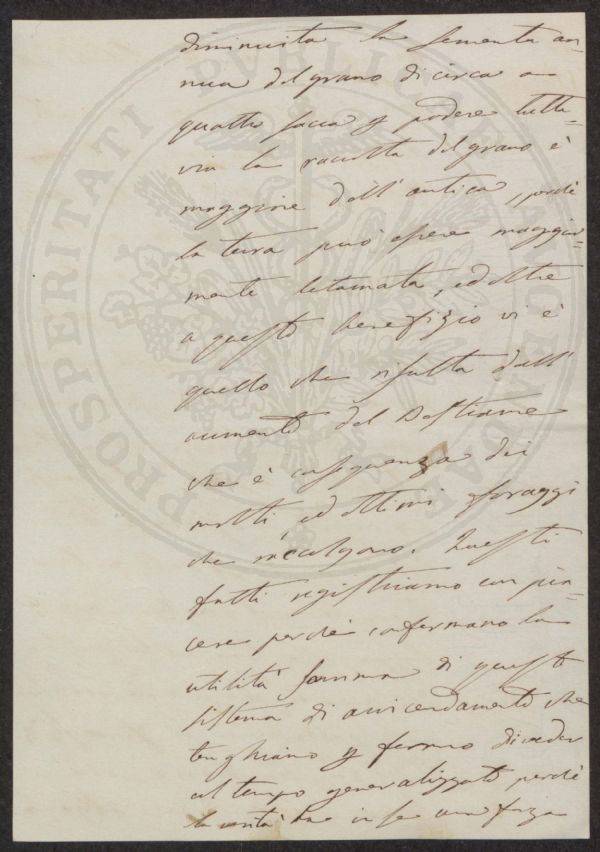 diminuita la sementa an-
nua del grano di circa a
quattro sacca p podere tutta-
via la raccolta del grano è
maggiore dell'antica, perchè
la terra può essere maggior-
mente letamata, ed oltre
a questo benefizio vi è
quello che risulta dall'
aumento del Bestiame
che è conseguenza dei
molti, ed ottimi foraggi
che raccolgono. Questi
fatti registriamo con pia-
cere perchè confermano la
utilità somma di questo
sistema di avvicendamento che
tenghiamo p fermo di veder
col tempo generalizzato perchè
la verità ha in se una forza
PROSPERITATI PUBLICAE AUGENDAE